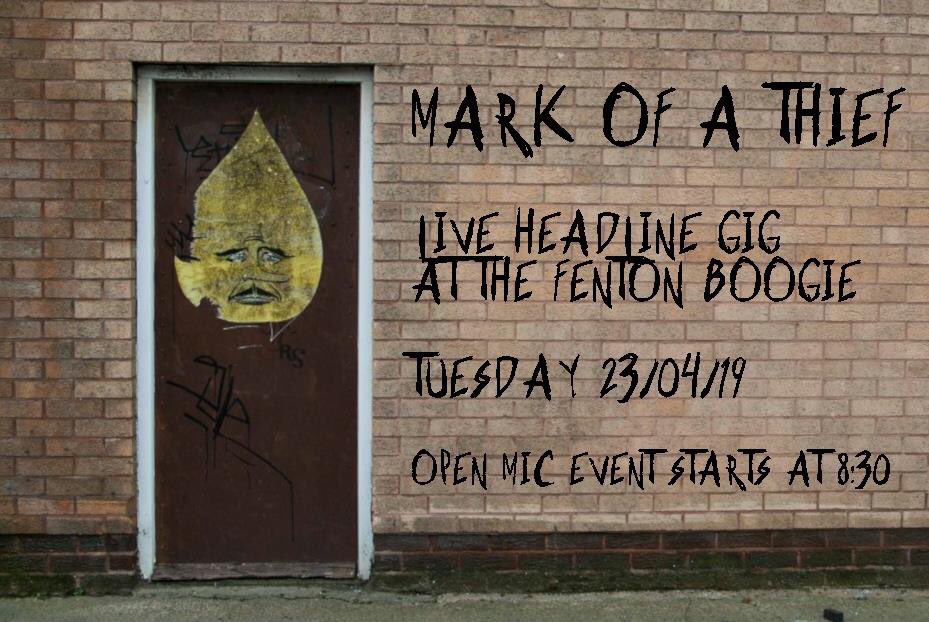 MARK OF A THIEF
LIVE HEADLINE GIG
AT THE FENTON BOOGIE
TUESDAY 23/04/19
OPEN MIC EVENT STARTS AT 8:30
RS